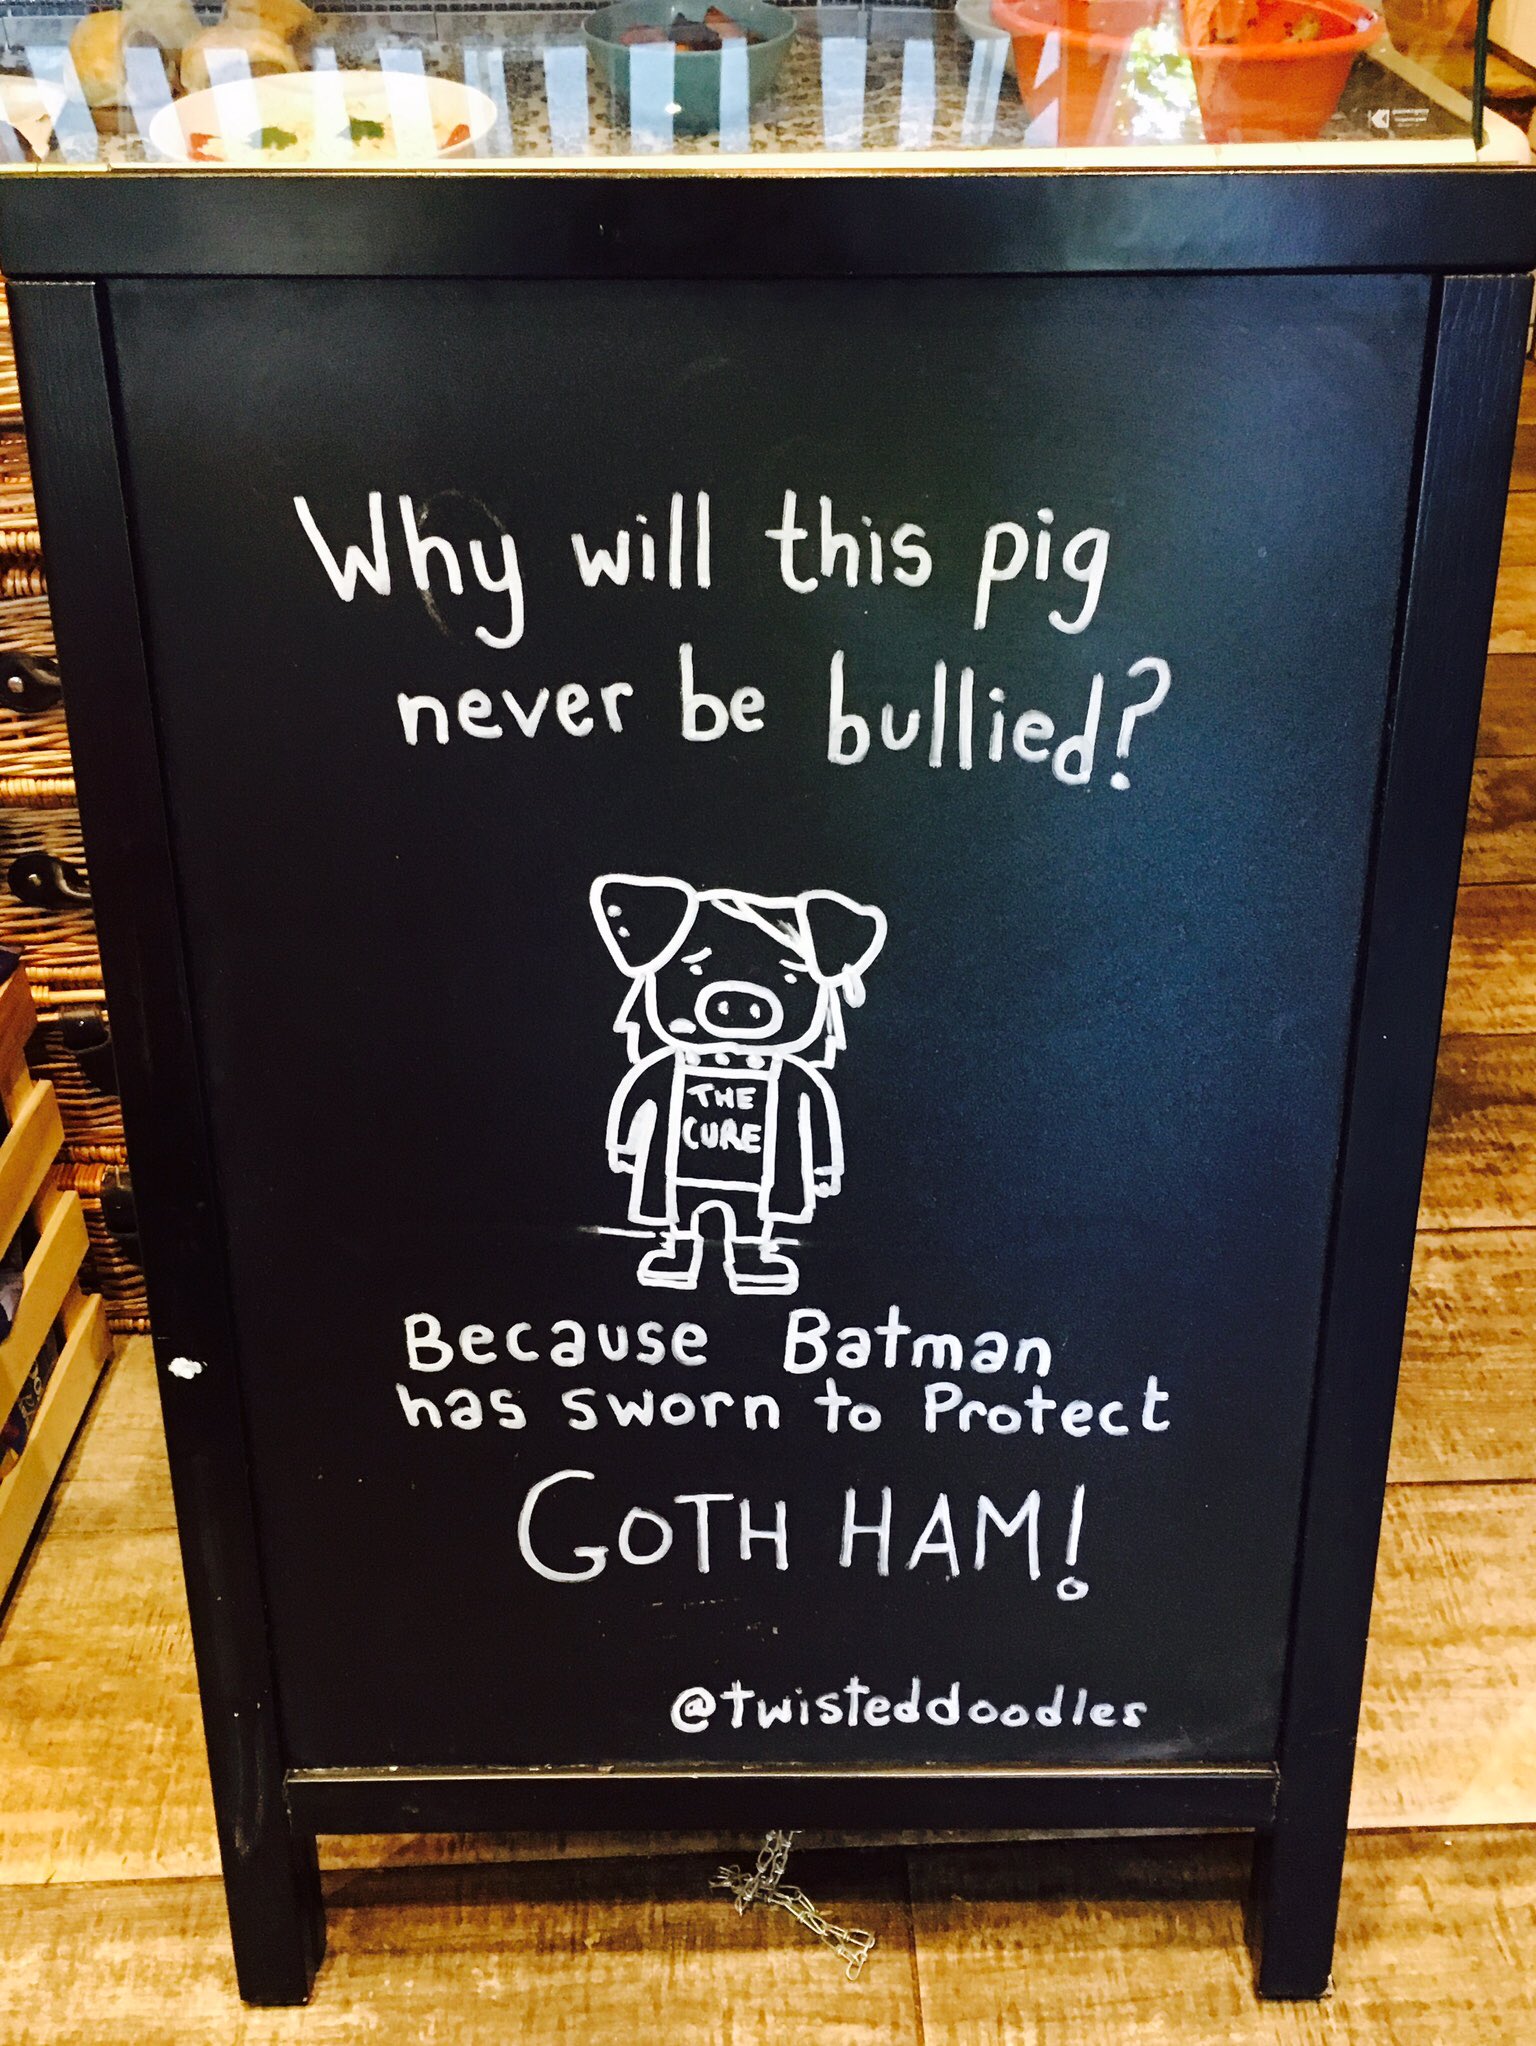 Why will this pig
never be bullied?
THE
CURE
Because Batman
has sworn to Protect
GOTH HAM!
@twisteddoodles